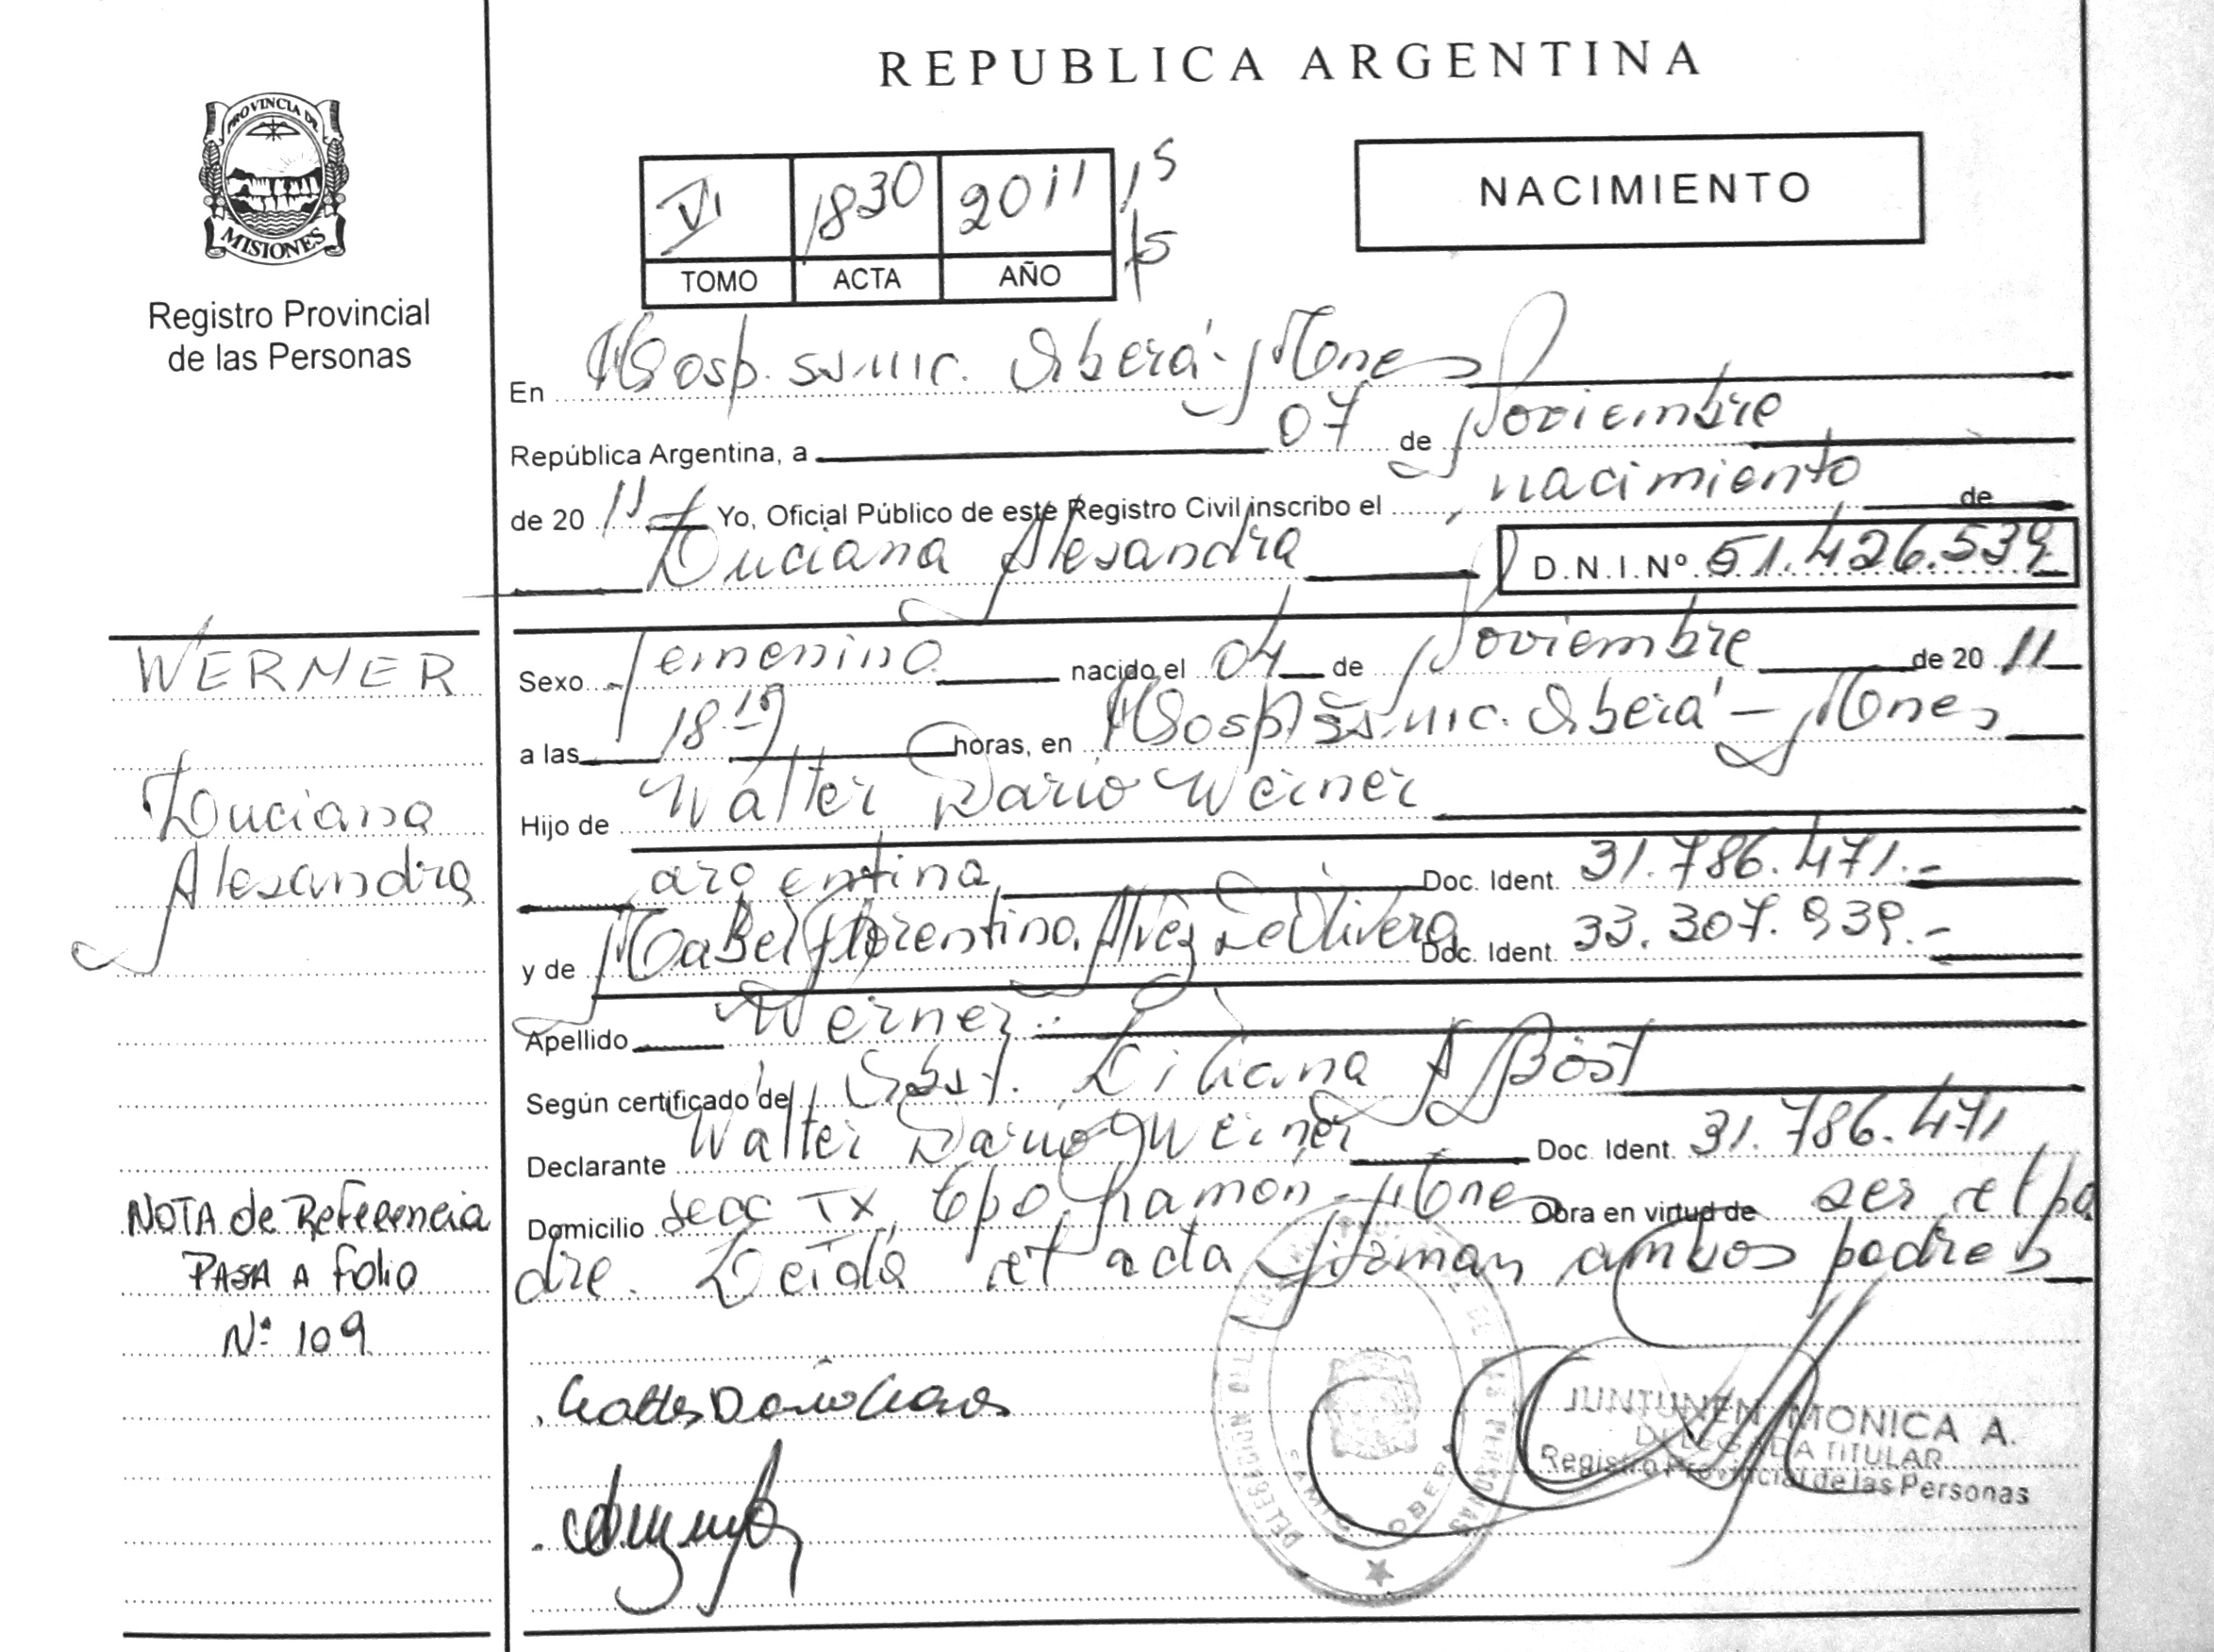 REPUBLICA ARGENTINA
PROVINCIA DE
MISIONES
Registro Provincial
de las Personas
VI 1830 2011 15
15
TOMO ACTA AÑO
NACIMIENTO
En Hosp. SSMIC. Oberá - Mnes
República Argentina, a 07 de Noviembre
de 20 11 Yo, Oficial Público de este Registro Civil inscribo el nacimiento de
Luciana Alexandra D.N.I.Nº 51.426.539
WERNER
Luciana
Alexandra
Sexo femenino nacido el 04 de Noviembre de 20 11
a las 18 19 horas, en Hosp. SSMIC. Oberá - Mnes
Hijo de Walter Dario Werner
argentina Doc. Ident. 31.786.471.-
y de Mabel Florentina Alvez De Olivera Doc. Ident. 33.307.939.-
Apellido Werner.
Según certificado de Obst. Liliana A Bost
Declarante Walter Dario Werner Doc. Ident. 31.786.471
Domicilio Secc TX, Cpo Ramón - Mnes Obra en virtud de ser el pa
dre. Leída el acta firman ambos padres
NOTA de Referencia
PASA A folio
Nº 109
JUNTUNEN MONICA A.
DELEGADA TITULAR
Registro Provincial de las Personas